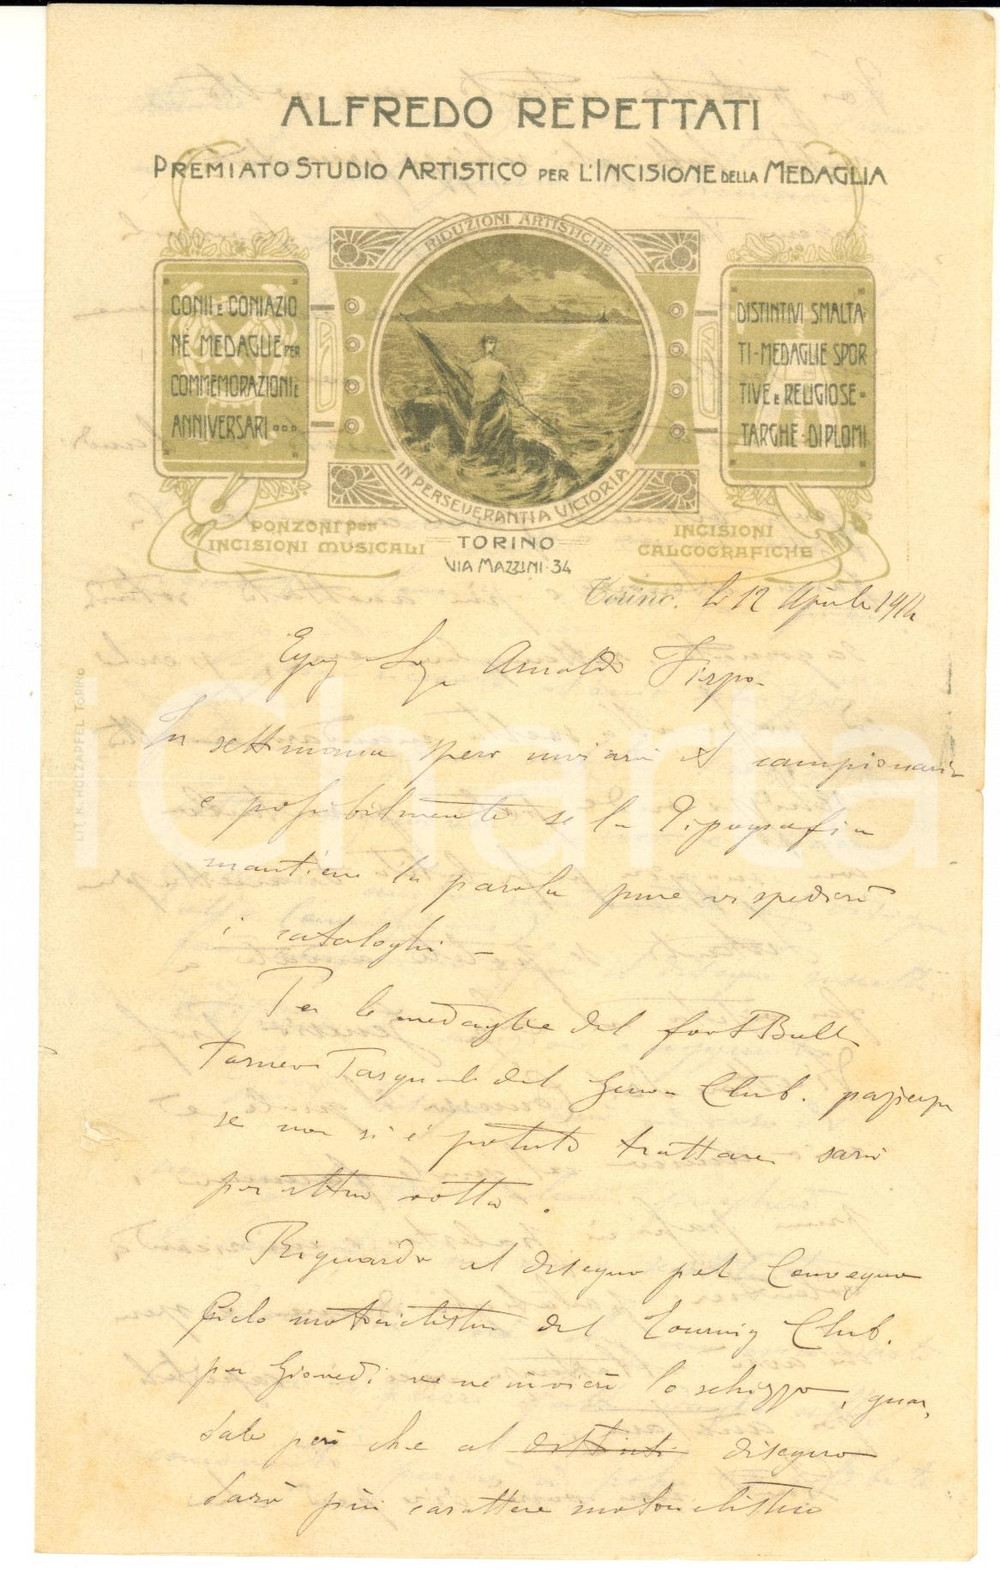 ALFREDO REPETTATI
PREMIATO STUDIO ARTISTICO PER L'INCISIONE DELLA MEDAGLIA
RIDUZIONI ARTISTICHE
CONII E CONIAZIO
NE MEDAGLIE PER
COMMEMORAZIONI E
ANNIVERSARI
DISTINTIVI SMALTA-
TI-MEDAGLIE SPOR
TIVE E RELIGIOSE-
TARGHE-DIPLOMI
IN PERSEVERANTIA VICTORIA
PONZONI PER
INCISIONI MUSICALI
INCISIONI
CALCOGRAFICHE
TORINO
VIA MAZZINI-34
Torino, li 12 Aprile 1914
Egreg Sigr Arnaldo Firpo-
In settimana spero inviarvi il campionario
e possibilmente se la Tipografia
mantiene la parola pure vi spedirò
i cataloghi -
Per le medaglie del foot Ball
Torneo Pasquale del Genoa Club. pazienza
se non si è potuto trattare sarà
per altra volta.
Riguardo al disegno pel Convegno
Ciclo motociclistico del Touring Club.
per Giovedì ve ne invierò lo schizzo, guar,
date però che al disegno
darò più carattere motociclistico
LIT. K. HOLZAPFEL TORINO
iCharta